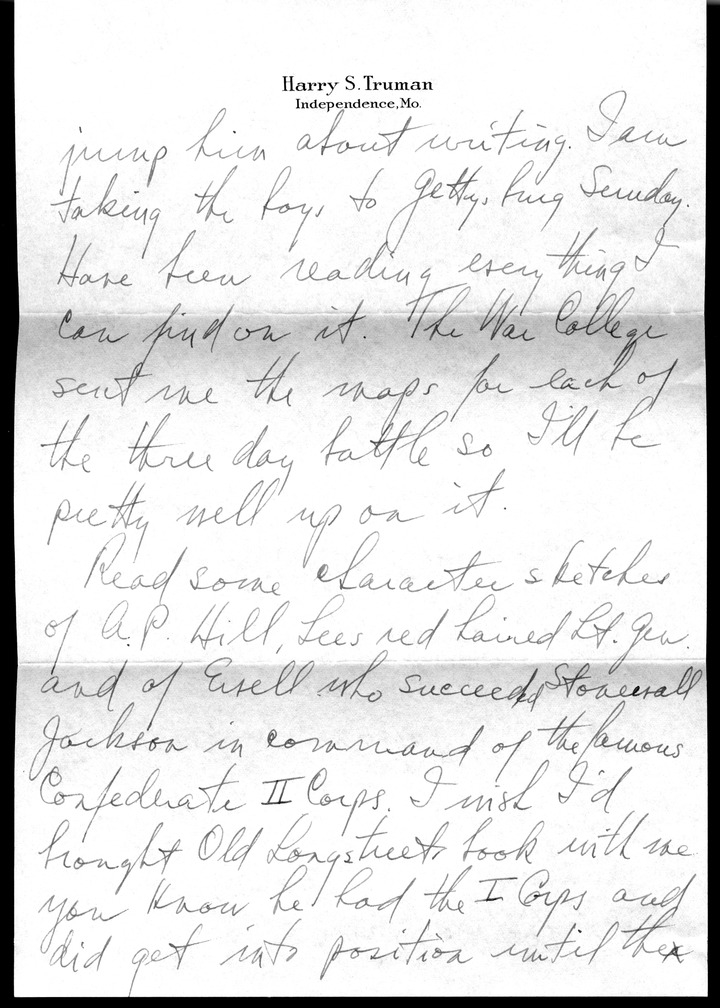 Harry S. Truman
Independence, Mo.
jump him about writing. I am
taking the boys to Gettysburg Sunday.
Have been reading everything I
can find on it. The War College
sent me the maps for each of
the three day battle so I'll be
pretty well up on it.
Read some character sketches
of A.P. Hill, Lees red haired Lt. Gen.
and of Ewell who succeeded Stonewall
Jackson in command of the famous
Confederate II Corps. I wish I'd
brought Old Longstreets book with me
you know he had the I Corps and
did get into position until the